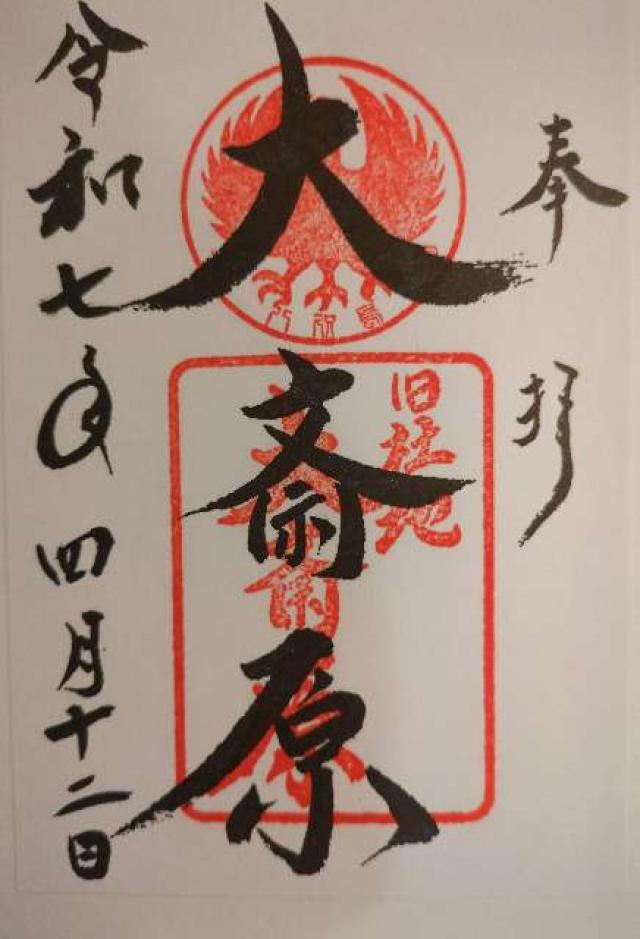 奉拝
大斎原
旧社地
大斎原
令和七年四月十二日